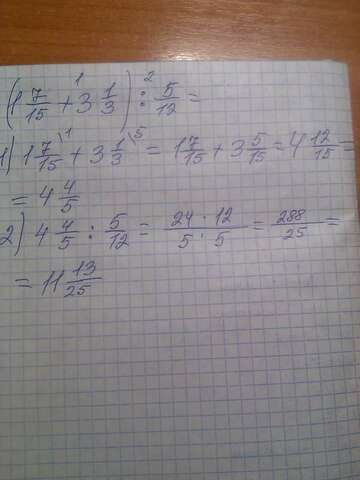 (1 7/15 + 3 1/3) : 5/12 =
1) 1 7/15 + 3 1/3 = 1 7/15 + 3 5/15 = 4 12/15 =
= 4 4/5
2) 4 4/5 : 5/12 = 24 · 12/5 · 5 = 288/25 =
= 11 13/25